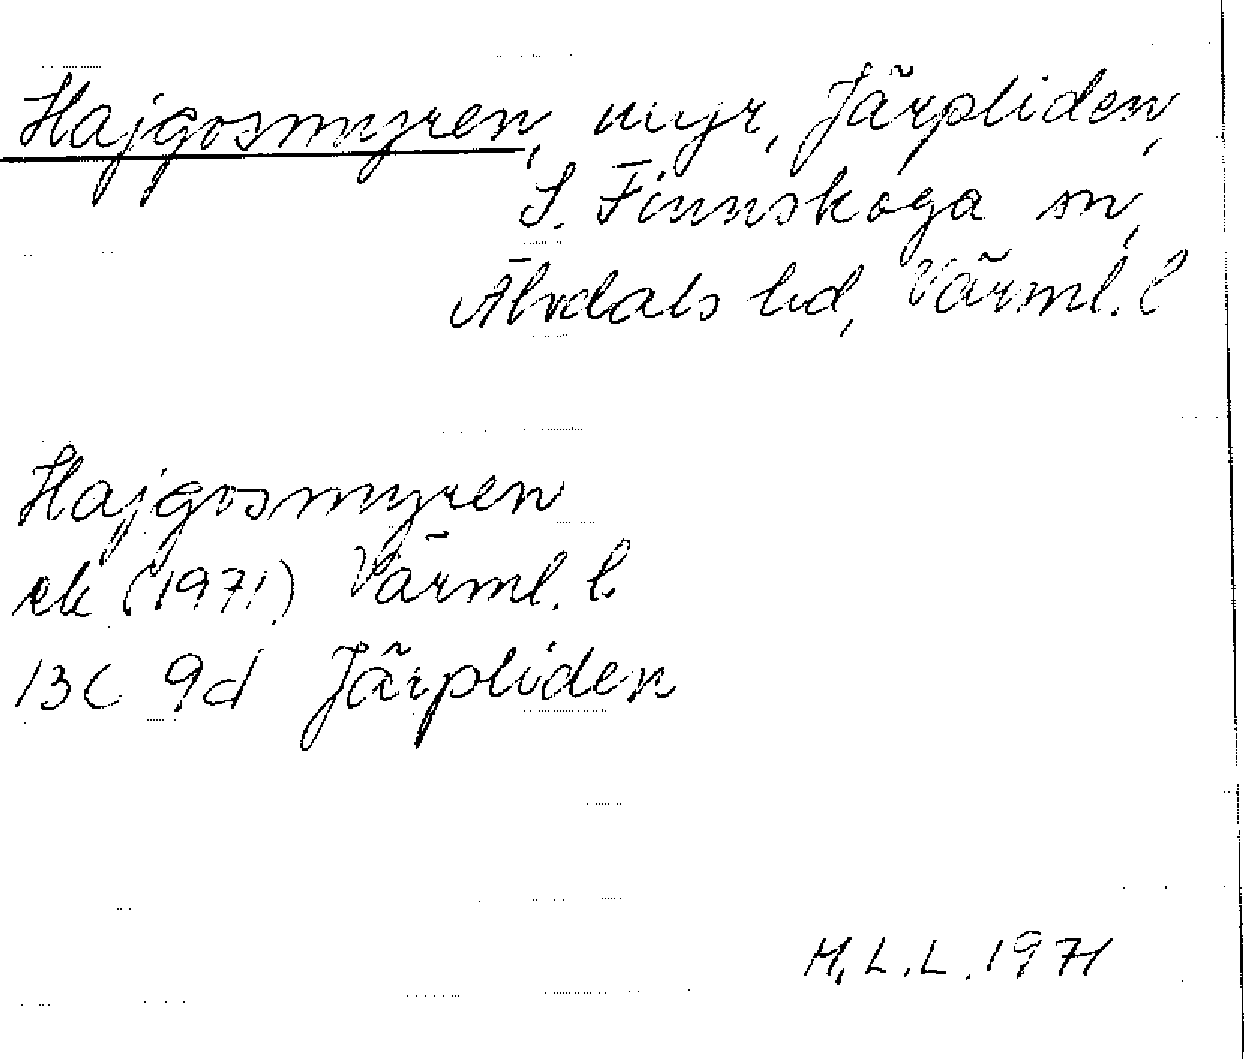 Hajgosmyren, myr, Järpliden,
S. Finnskoga sn,
Älvdals hd, Värml. l
Hajgosmyren
ek (1971) Värml. l.
13C 9d Järpliden
M.L.L. 1971